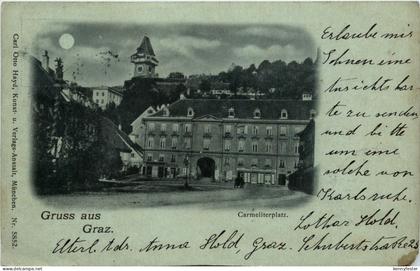 Carl Otto Hayd, Kunst- u. Verlags-Anstalt, München. Nr. 5852.
Erlaube mir
Ihnen eine An-
sichtskar-
te zu senden
und bitte
um eine
solche von
Karlsruhe.
Lothar Hold
Gruss aus
Graz.
Carmeliterplatz.
Adr. Anna Hold Graz. Schubertstraße 23
kennyfester